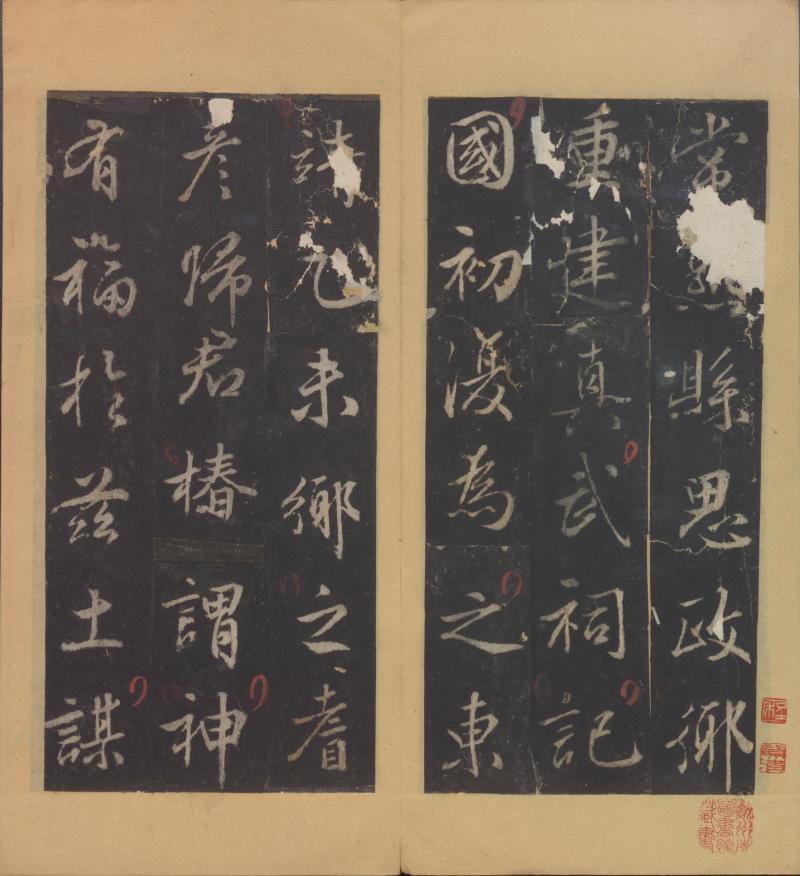 常縣思政鄉
重建真武祠記
國初復為之東
己未鄉之耆
彥歸君椿謂神
有福於茲土謀